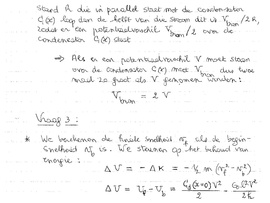 stand R die in parallel staat met de condensator
C(x) liep dan de helft van die stroom dit is V_bron/2R,
zodat er een potentiaalverschil V_bron/2 over de
condensator C(x) staat
⇒ Als er een potentiaalverschil V moet staan
over de condensator C(x) moet V_bron dus twee
maal zo groot als V genomen worden:
V_bron = 2 V
Vraag 3:
* We berekenen de finale snelheid v_f als de begin-
snelheid v_b is. We steunen op het behoud van
energie:
ΔU = - ΔK = - 1/2 m (v_f² - v_b²)
ΔU = U_f - U_b =